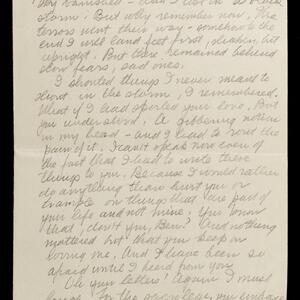 vanished - and I lost in a black
storm. But why remember now. The
terrors went their way - somehow in the
end I will land feet first, shaken, but
upright. But there remained behind
slow fears, sad ones.
I shouted things I never meant to
shout in the storm, I remembered.
What if I had spoiled your love. But
you understood. A gibbering notion
in my head - and I had to rout the
pain of it. I can't speak now even of
the fact that I had to write those
things to you. Because I would rather
do anything than hurt you or
trample on things that are part of
your life and not mine. You know
that, don't you, Ben? And nothing
mattered but that you keep on
loving me. And I have been so
afraid until I heard from you.
Oh your letter! Again I must